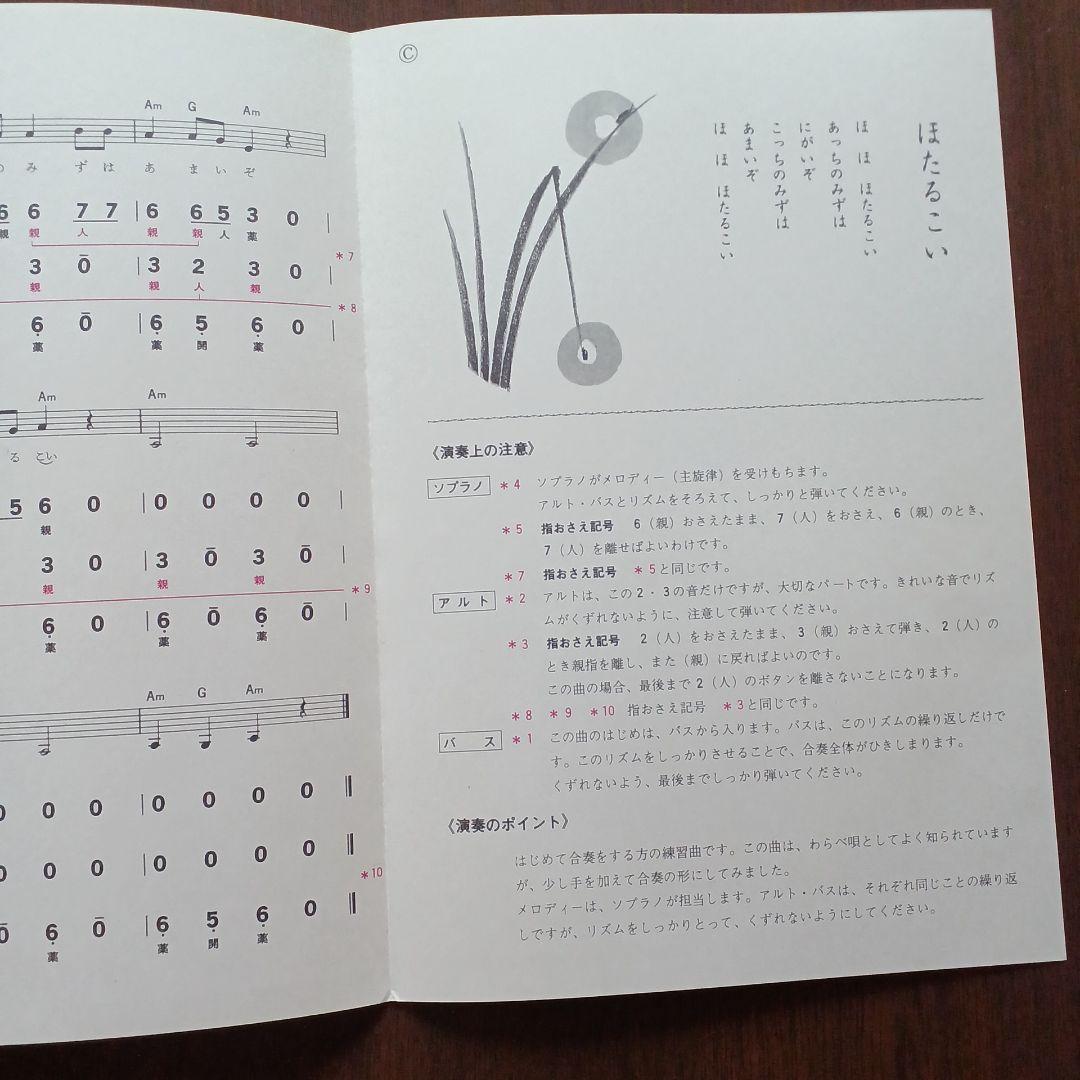 Am G Am
のみ ずは あ まいぞ
6 6 7 7 | 6 6 5 3 0 |
親 親 人 親 親 人 薬
3 0̄ | 3 2 3 0 | *7
親 親 人 親
*8
6̣ 0̄ | 6̣ 5̣ 6̣ 0 |
薬 薬 開 薬
Am Am
る こい
5 6 0 | 0 0 0 0 |
親
3 0 | 3 0̄ 3 0̄ |
親 親 親
*9
6̣ 0 | 6̣ 0̄ 6̣ 0̄ |
薬 薬 薬
Am G Am
0 0 0 | 0 0 0 0 ||
0 0 0 | 0 0 0 0 ||
*10
0̄ 6̣ 0̄ | 6̣ 5̣ 6̣ 0 ||
薬 薬 開 薬
©
ほたるこい
ほ ほ ほたるこい
あっちのみずは
にがいぞ
こっちのみずは
あまいぞ
ほ ほ ほたるこい
〈演奏上の注意〉
ソプラノ *4 ソプラノがメロディー(主旋律)を受けもちます。
アルト・バスとリズムをそろえて、しっかりと弾いてください。
*5 指おさえ記号 6(親)おさえたまま、7(人)をおさえ、6(親)のとき、
7(人)を離せばよいわけです。
*7 指おさえ記号 *5と同じです。
アルト *2 アルトは、この2・3の音だけですが、大切なパートです。きれいな音でリズ
ムがくずれないように、注意して弾いてください。
*3 指おさえ記号 2(人)をおさえたまま、3(親)おさえて弾き、2(人)の
とき親指を離し、また(親)に戻ればよいのです。
この曲の場合、最後まで2(人)のボタンを離さないことになります。
*8 *9 *10 指おさえ記号 *3と同じです。
バス *1 この曲のはじめは、バスから入ります。バスは、このリズムの繰り返しだけで
す。このリズムをしっかりさせることで、合奏全体がひきしまります。
くずれないよう、最後までしっかり弾いてください。
〈演奏のポイント〉
はじめて合奏をする方の練習曲です。この曲は、わらべ唄としてよく知られています
が、少し手を加えて合奏の形にしてみました。
メロディーは、ソプラノが担当します。アルト・バスは、それぞれ同じことの繰り返
しですが、リズムをしっかりとって、くずれないようにしてください。